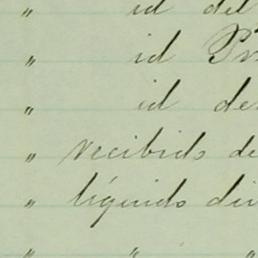 " id del
" id
" id de
" recibido de
" líquido di
" "